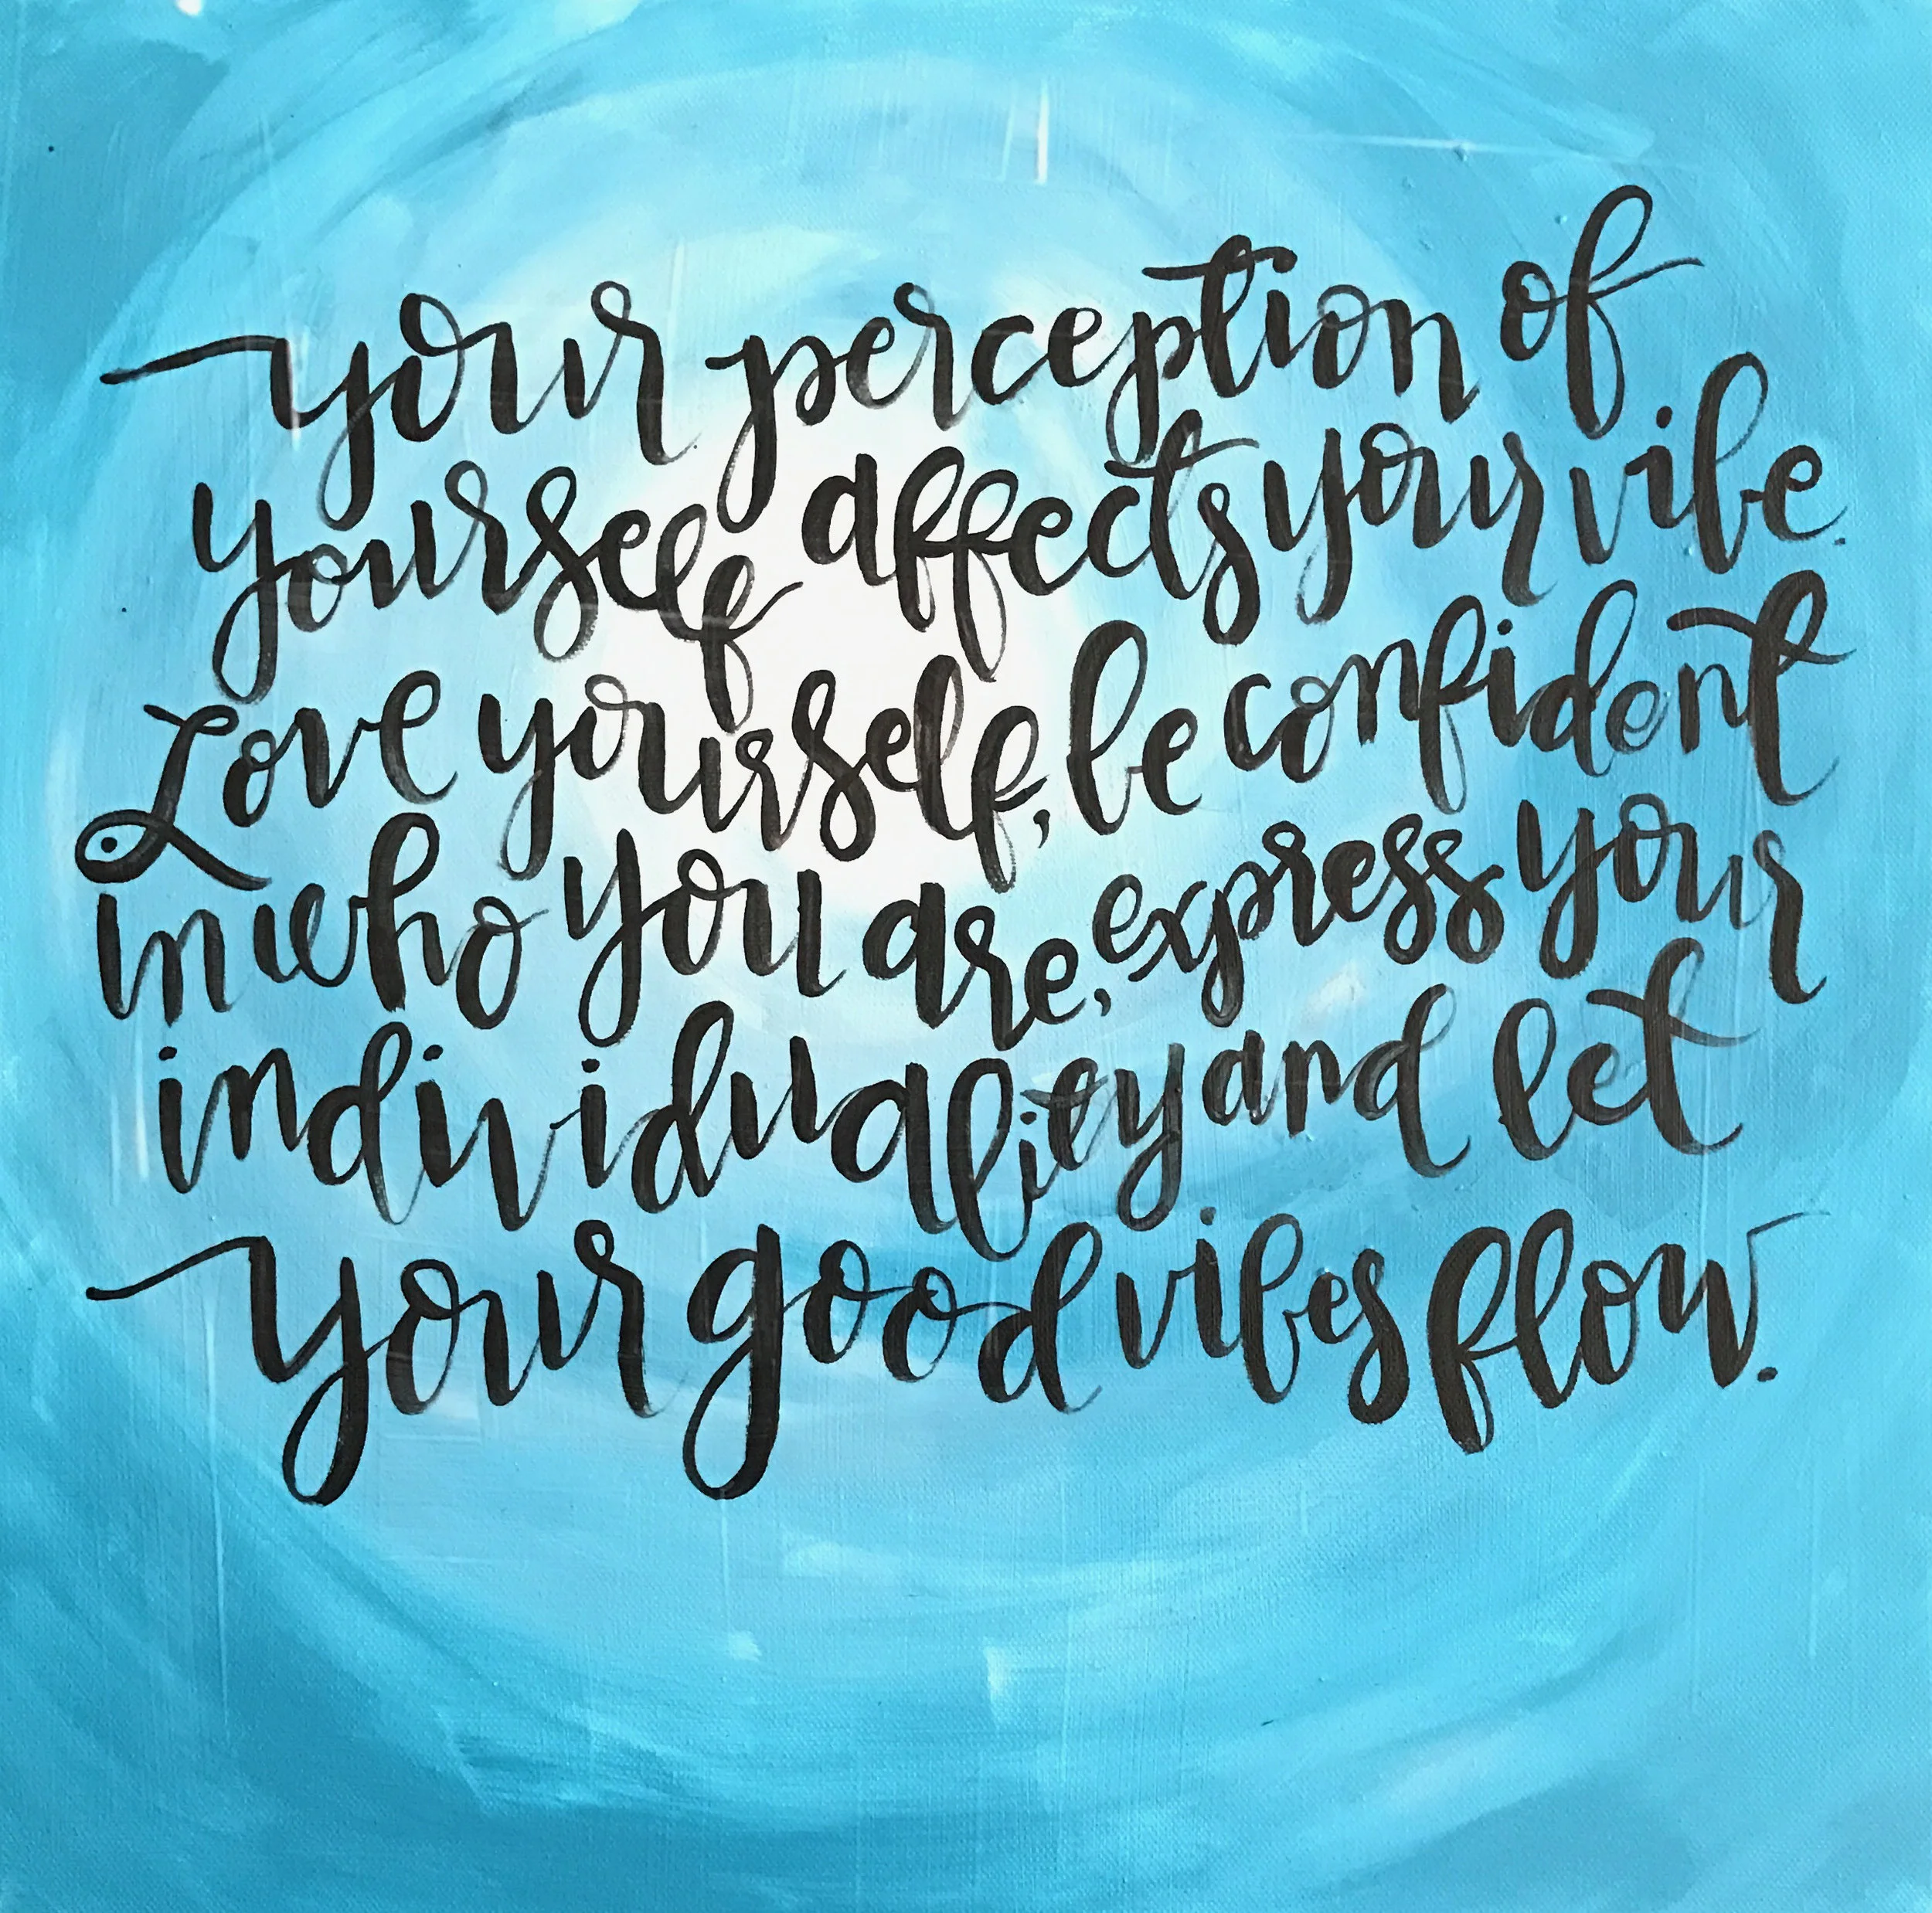 your perception of
yourself affects your vibe.
Love yourself, be confident
in who you are, express your
individuality and let
your good vibes flow.